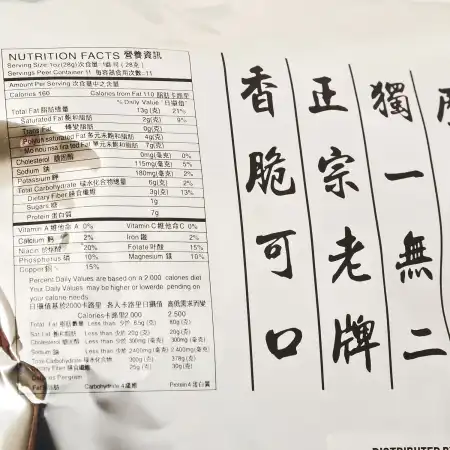 NUTRITION FACTS 營養資訊
Serving Size: 1oz(28g)
Servings Peer Container 11 每容器食用次數: 11
Amount Per Serving 次食量中之含量
Calories 160 Calories from Fat 110
% Daily Value
Total Fat 脂肪總量 13g(克) 21%
Saturated Fat 飽和脂肪 2g(克) 9%
Trans Fat 轉變脂肪 0g(克)
saturated Fat 4g(克)
7g(克)
Cholesterol 膽固醇 0mg(毫克) 0%
Sodium 鈉 115mg(毫克) 5%
Potassium 鉀 180mg(毫克) 2%
Total Carbohydrate 碳水化合物總量 6g(克) 2%
Dietary Fiber 3g(克) 13%
Sugars 糖 1g
Protein 蛋白質 7g
Vitamin A 維他命 A 0% Vitamin C 維他命C 0%
Calcium 鈣 2% Iron 鐵 2%
Niacin 20% Folate 叶酸 15%
Phosphatus 磷 10% Magnesium 鎂 10%
Copper 銅 15%
Percent Daily Values are based on a 2 000 calories diet
Your Daily Values may be higher or lowerde pending on
your calorie needs
Calories卡路里2 000 2 500
Total Fat Less than 少於 65g(克) 80g(克)
Sat Fat Less than 少於 20g(克)
Cholesterol 膽固醇 Less than 少於 300mg(毫克) 300mg(毫克)
Sodium 鈉 Less than 少於 2400mg(毫克) 2 400mg(毫克)
Total Carbohydrate 碳水化合物 300g(克)
Fiber 25g(克) 30g(克)
Carbohydrate 4 Protein4 蛋白質
獨一無二
正宗老牌
香脆可口
DISTRIBUTED